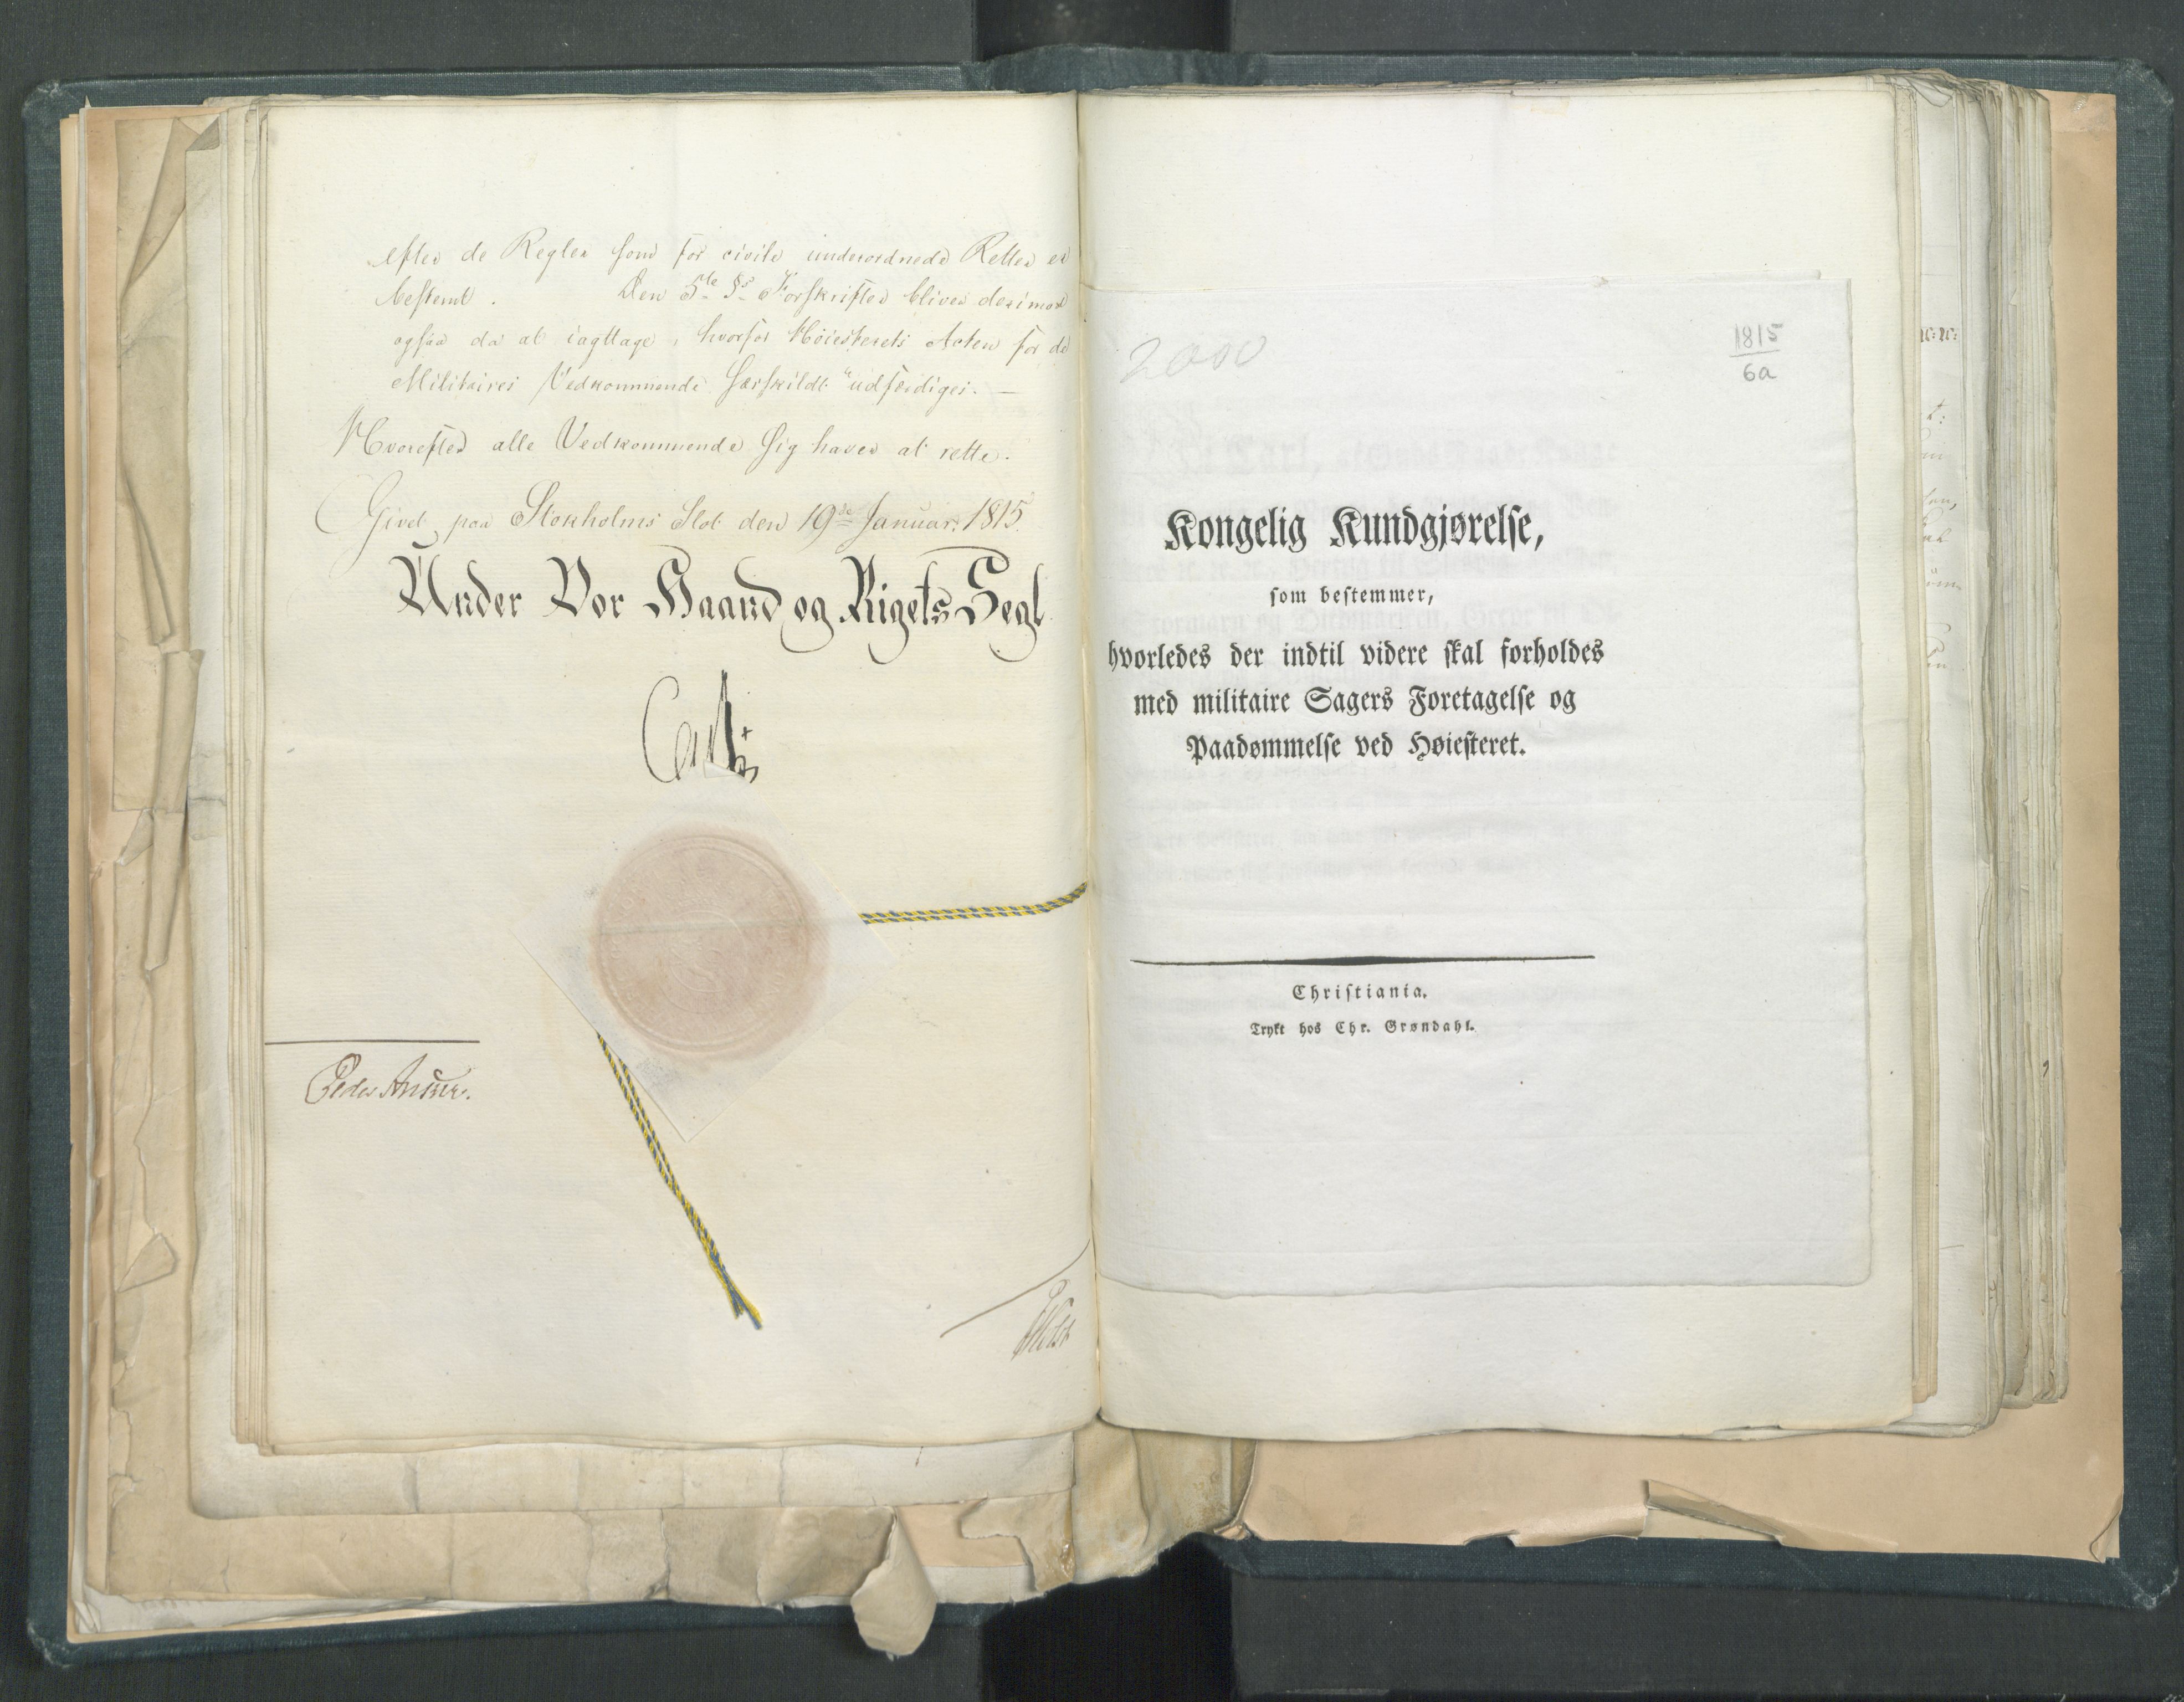 efter de Regler som for civile underordnede Retter er
bestemt. Den 5te §s Forskrifter bliver derimod
ogsaa da at iagttage, hvorfor Høiesterets Acten for de
Militaires Vedkommende særskildt udfærdiges. —
Hvorefter alle Vedkommende sig haver at rette.
Givet paa Stokholms Slot den 19de Januar. 1815.
Under Vor Haand og Rigets Segl
Carl
Peder Anker.
Holst
2000
1815
6a
Kongelig Kundgjørelse,
som bestemmer,
hvorledes der indtil videre skal forholdes
med militaire Sagers Foretagelse og
Paadømmelse ved Høiesteret.
Christiania.
Trykt hos Chr. Grøndahl.